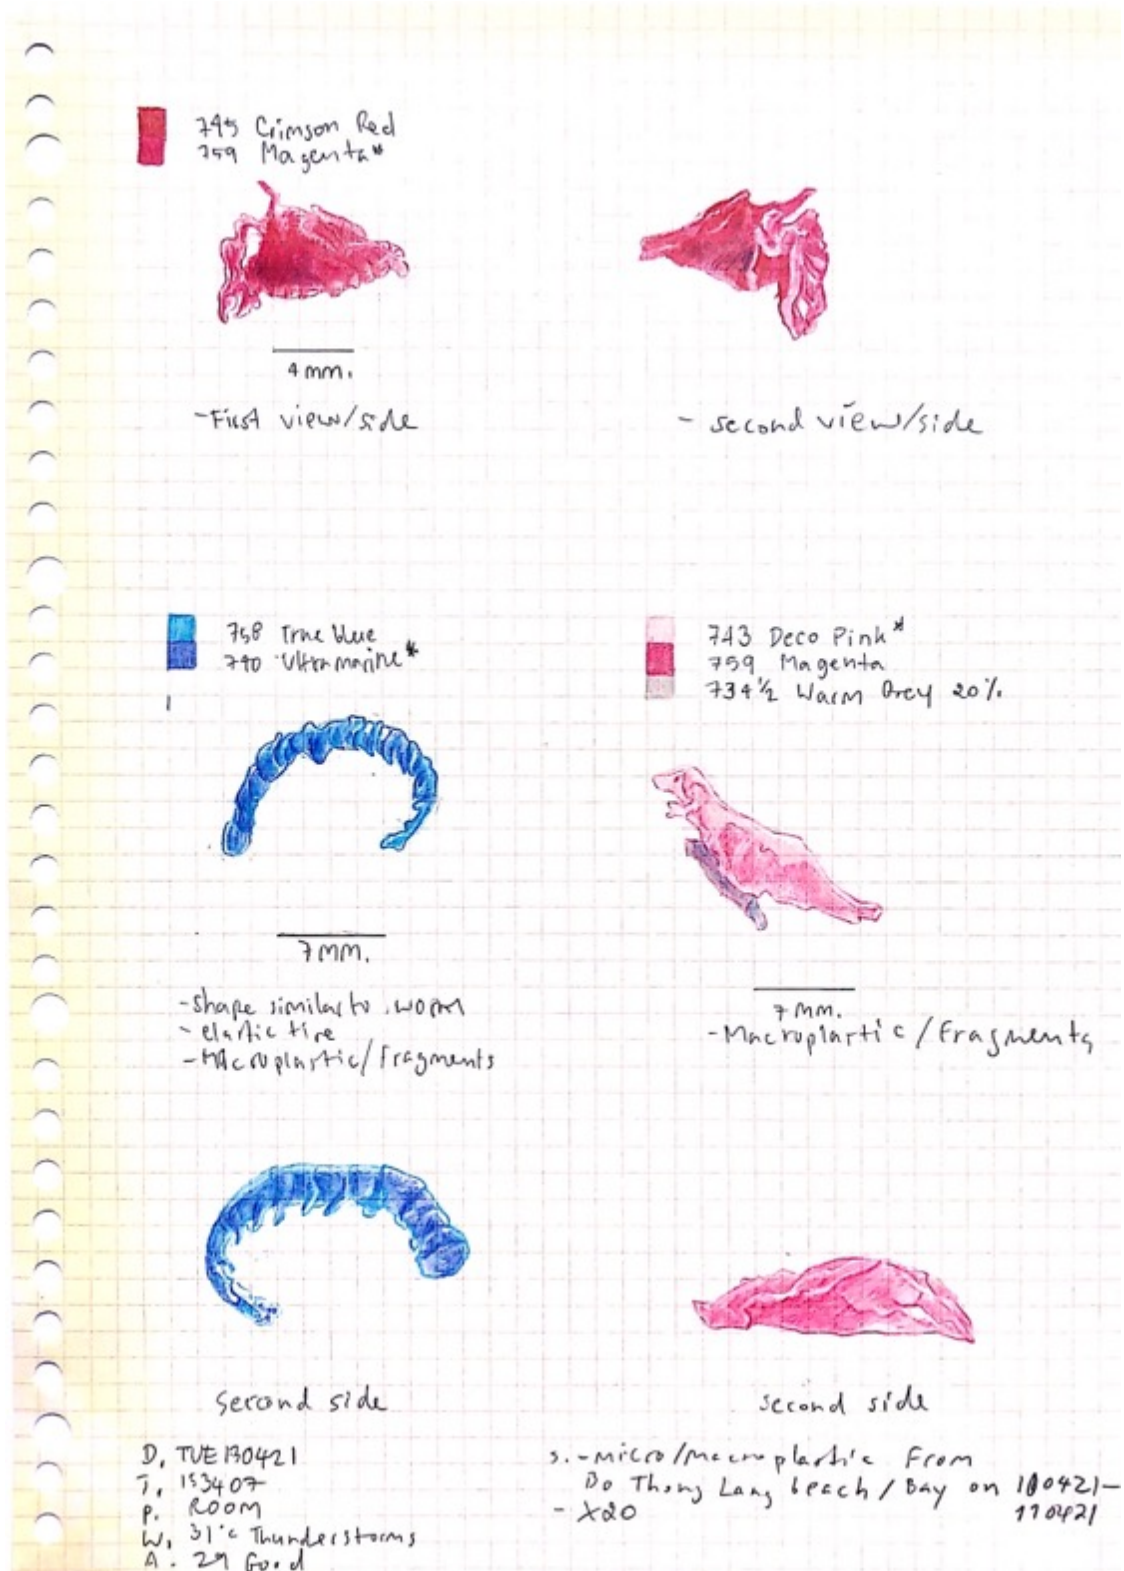 745 Crimson Red
759 Magenta*
4 mm.
-First view/side
- second view/side
758 True blue
740 Ultramarine*
743 Deco Pink*
759 Magenta
734 1/2 Warm Grey 20%
7 mm.
-Shape similar to worm
- elastic tire
-Macroplastic/Fragments
7 mm.
-Macroplastic/Fragments
second side
second side
D. TUE 130421
T. 153407
P. ROOM
W. 31°c Thunderstorms
A. 29 Good
S. -micro/macroplastic From
Bo Thong Lang beach/Bay on 100421-
110421
- X20